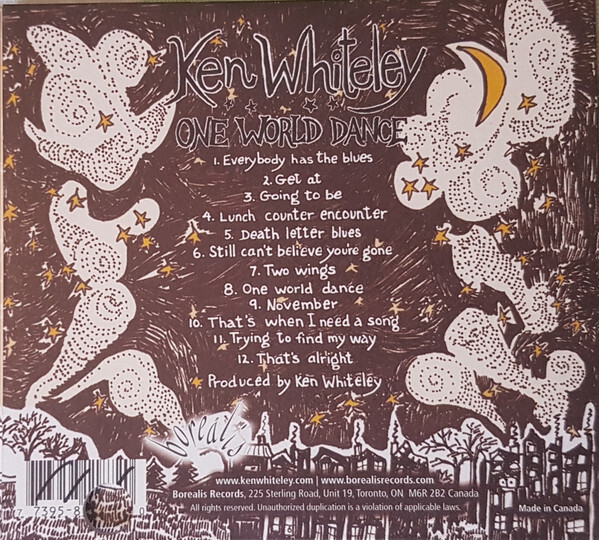 Ken Whiteley
ONE WORLD DANCE
1. Everybody has the blues
2. Get at
3. Going to be
4. Lunch counter encounter
5. Death letter blues
6. Still can't believe you're gone
7. Two wings
8. One world dance
9. November
10. That's when I need a song
11. Trying to find my way
12. That's alright
Produced by Ken Whiteley
borealis
www.kenwhiteley.com | www.borealisrecords.com
Borealis Records, 225 Sterling Road, Unit 19, Toronto, ON M6R 2B2 Canada
All rights reserved. Unauthorized duplication is a violation of applicable laws.
Made in Canada
7395-8